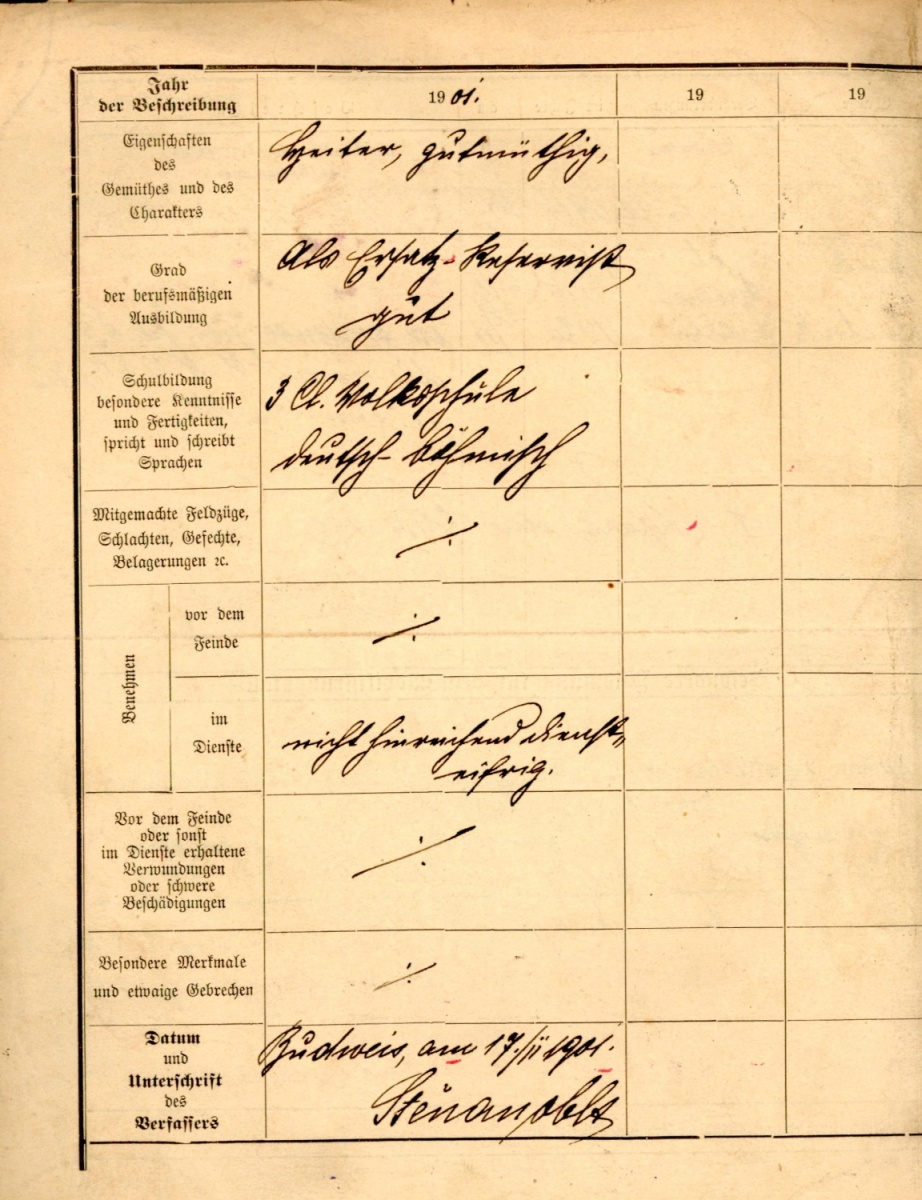 Jahr
der Beschreibung
1901.
19
19
Eigenschaften
des
Gemüthes und des
Charakters
Heiter, gutmüthig,
Grad
der berufsmäßigen
Ausbildung
Als Ersatz-Reservist
gut
Schulbildung
besondere Kenntnisse
und Fertigkeiten,
spricht und schreibt
Sprachen
3 Cl. Volksschule
deutsch-böhmisch
Mitgemachte Feldzüge,
Schlachten, Gefechte,
Belagerungen ꝛc.
⁒
Benehmen
vor dem
Feinde
⁒
im
Dienste
nicht hinreichend dienst-
eifrig.
Vor dem Feinde
oder sonst
im Dienste erhaltene
Verwundungen
oder schwere
Beschädigungen
⁒
Besondere Merkmale
und etwaige Gebrechen
⁒
Datum
und
Unterschrift
des
Verfassers
Budweis, am 17./II 1901.